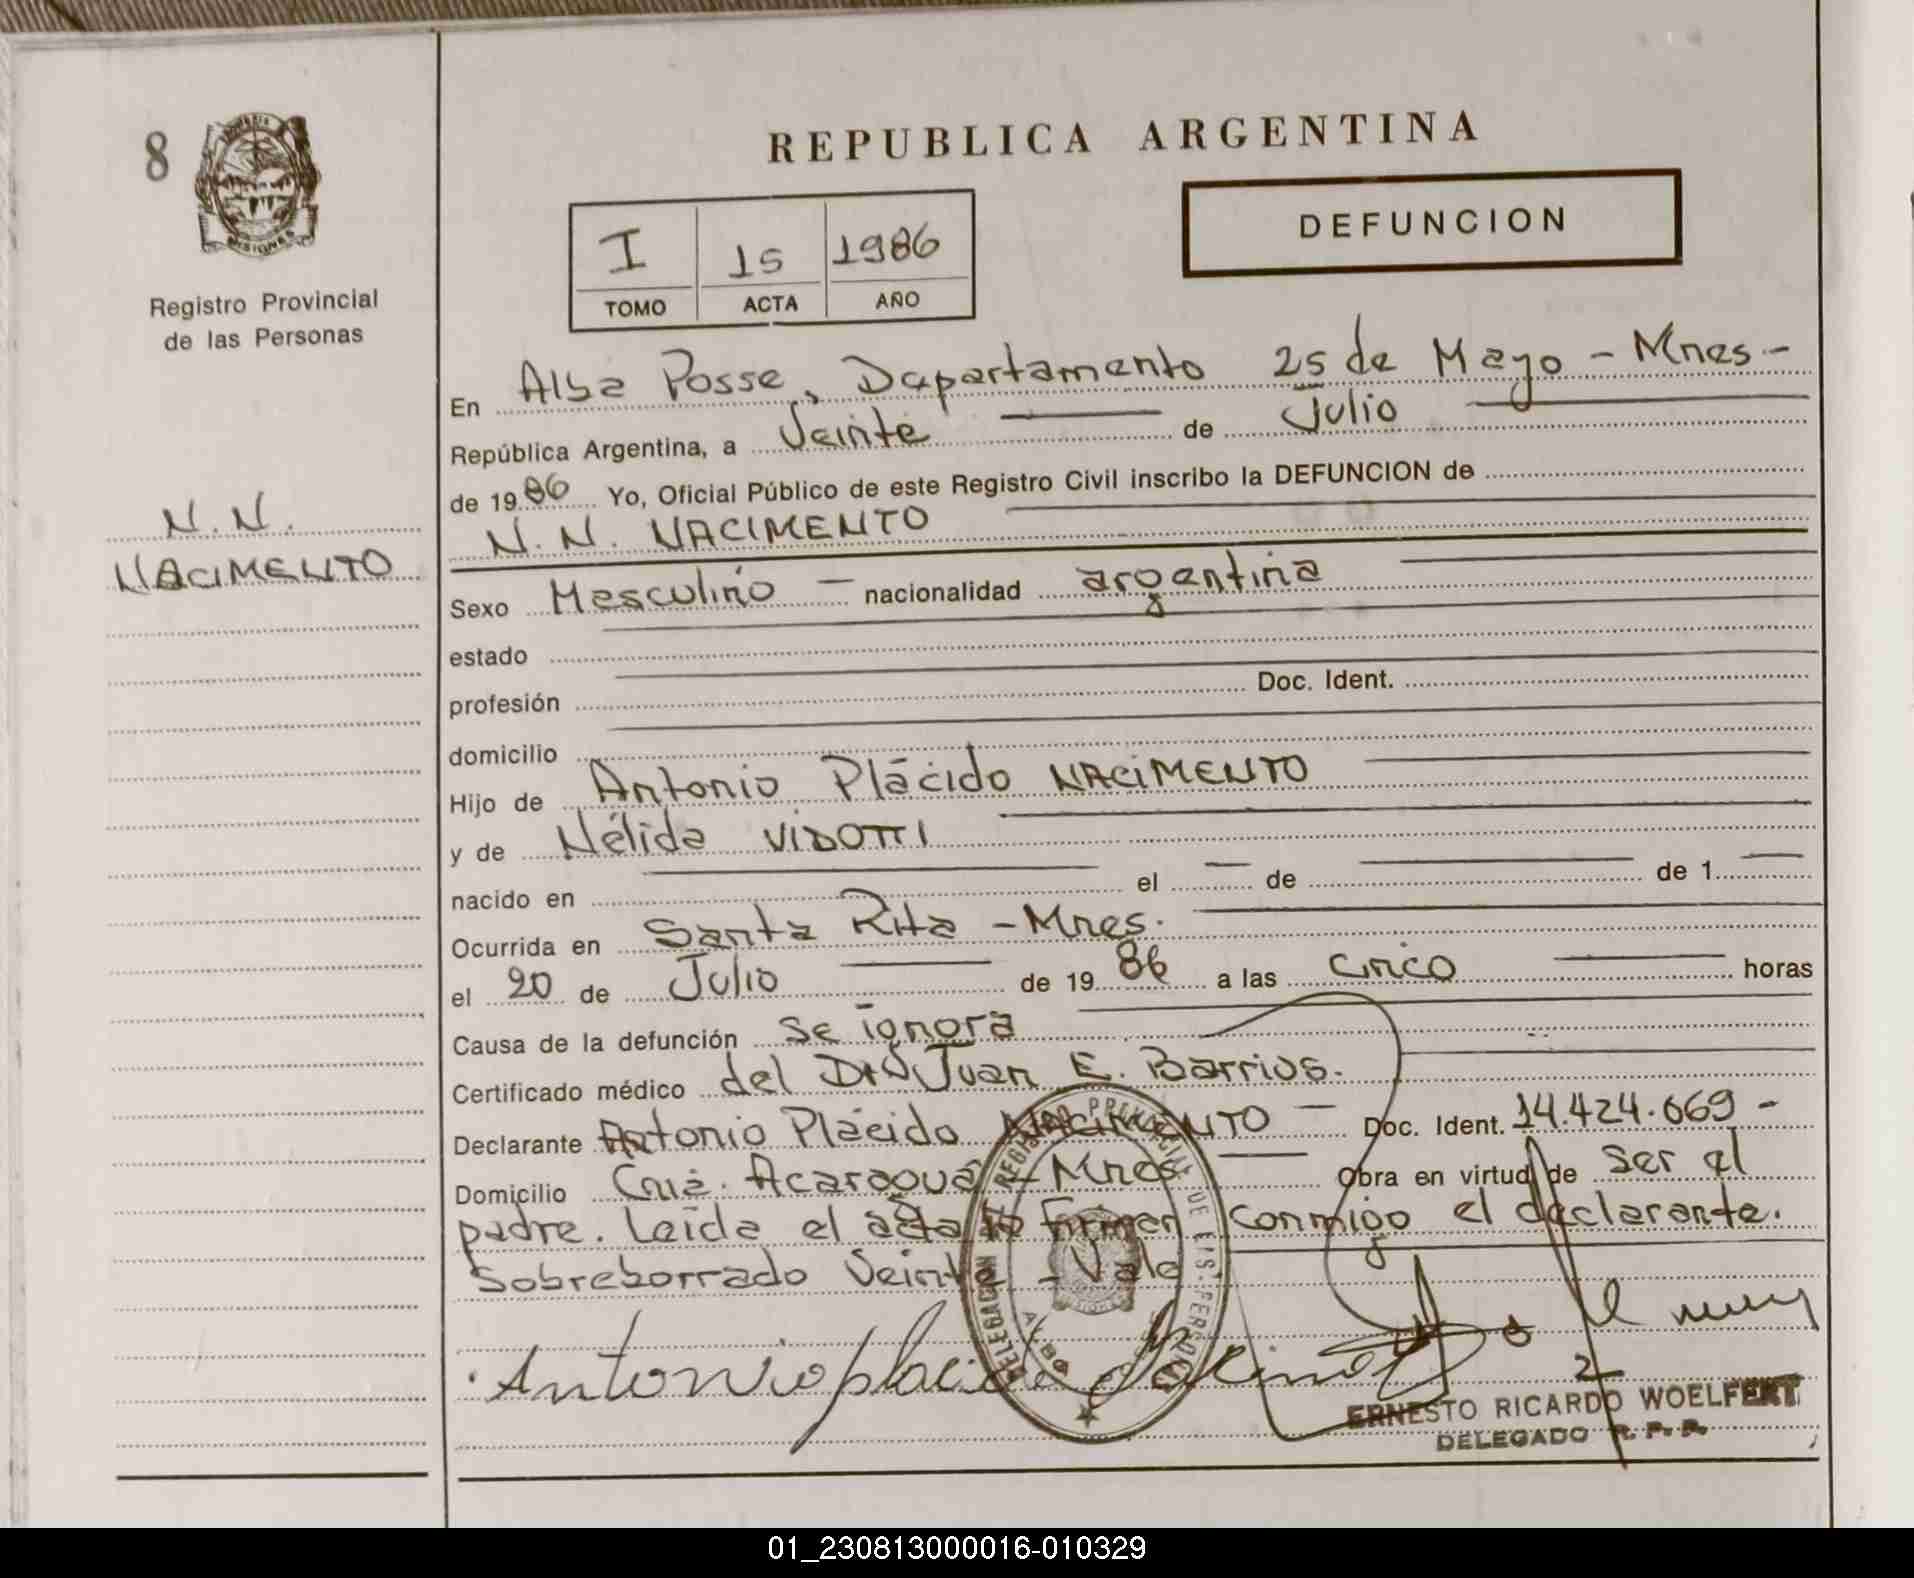 8
MISIONES
Registro Provincial
de las Personas
N. N.
NACIMENTO
REPUBLICA ARGENTINA
I 15 1986
TOMO ACTA AÑO
DEFUNCION
En Alba Posse, Departamento 25 de Mayo - Mnes -
República Argentina, a Veinte de Julio
de 1986 Yo, Oficial Público de este Registro Civil inscribo la DEFUNCION de
N. N. NACIMENTO
Sexo Masculino — nacionalidad argentina
estado
profesión Doc. Ident.
domicilio
Hijo de Antonio Plácido NACIMENTO
y de Nélida VIDOTTI
nacido en el — de — de 1 —
Ocurrida en Santa Rita - Mnes.
el 20 de Julio — de 1986 a las cinco — horas
Causa de la defunción se ignora
Certificado médico del Juan E. Barrios.
Declarante Antonio Plácido NACIMENTO — Doc. Ident. 14.424.669 -
Domicilio Acaraguá - Mnes — Obra en virtud de ser el
padre. Leída el acta firman conmigo el declarante.
Sobreborrado Veinte - Vale
Antonio placido
ERNESTO RICARDO WOELFERT
DELEGADO R. P. P.
01_230813000016-010329